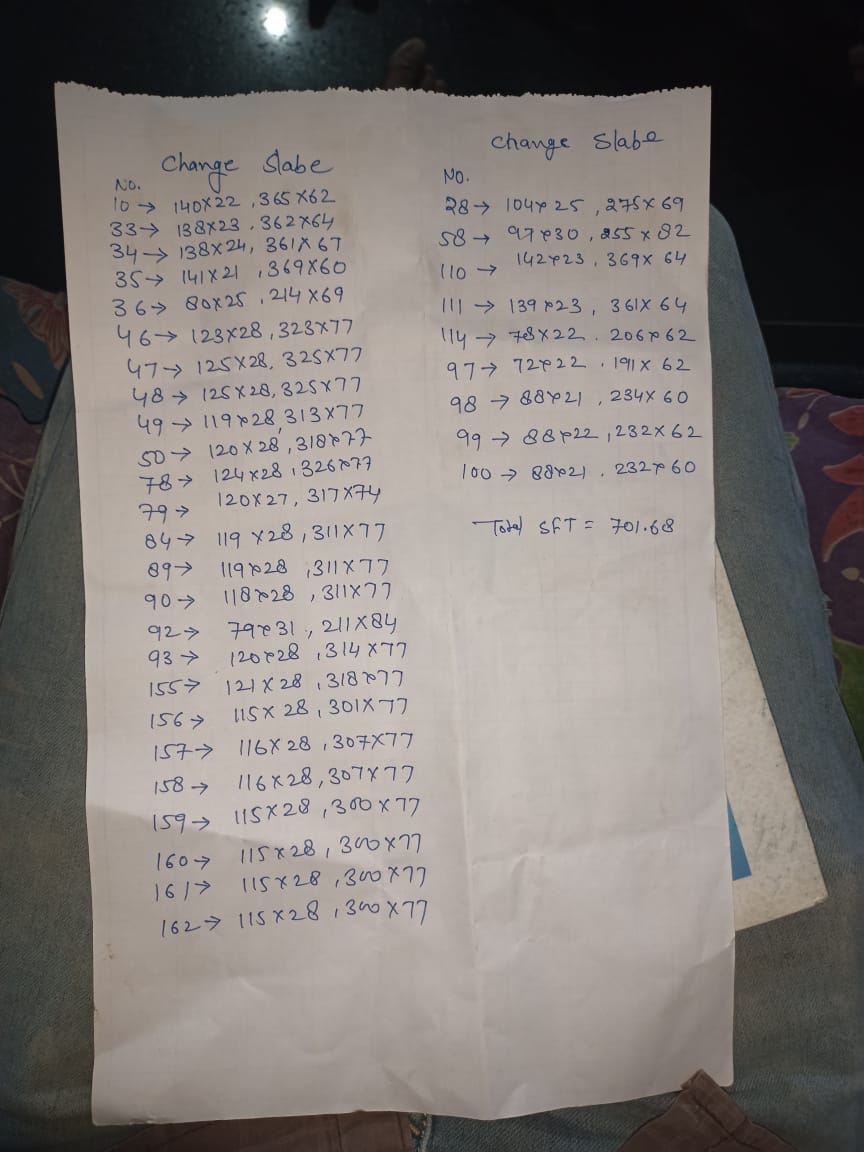 Change Slabe
No.
10 → 140X22, 365X62
33 → 138X23. 362X64
34 → 138X24, 361X67
35 → 141X21, 369X60
36 → 80X25, 214X69
46 → 123X28, 323X77
47 → 125X28, 325X77
48 → 125X28, 325X77
49 → 119X28, 313X77
50 → 120X28, 318X77
78 → 124X28, 326X77
79 → 120X27, 317X74
84 → 119X28, 311X77
89 → 119X28, 311X77
90 → 118X28, 311X77
92 → 79X31, 211X84
93 → 120X28, 314X77
155 → 121X28, 318X77
156 → 115X28, 301X77
157 → 116X28, 307X77
158 → 116X28, 307X77
159 → 115X28, 300X77
160 → 115X28, 300X77
161 → 115X28, 300X77
162 → 115X28, 300X77
Change Slabe
No.
28 → 104X25, 275X69
58 → 97X30, 255X82
110 → 142X23, 369X64
111 → 139X23, 361X64
114 → 78X22. 206X62
97 → 72X22. 191X62
98 → 88X21, 234X60
99 → 88X22, 232X62
100 → 88X21. 232X60
Total SFT = 701.68